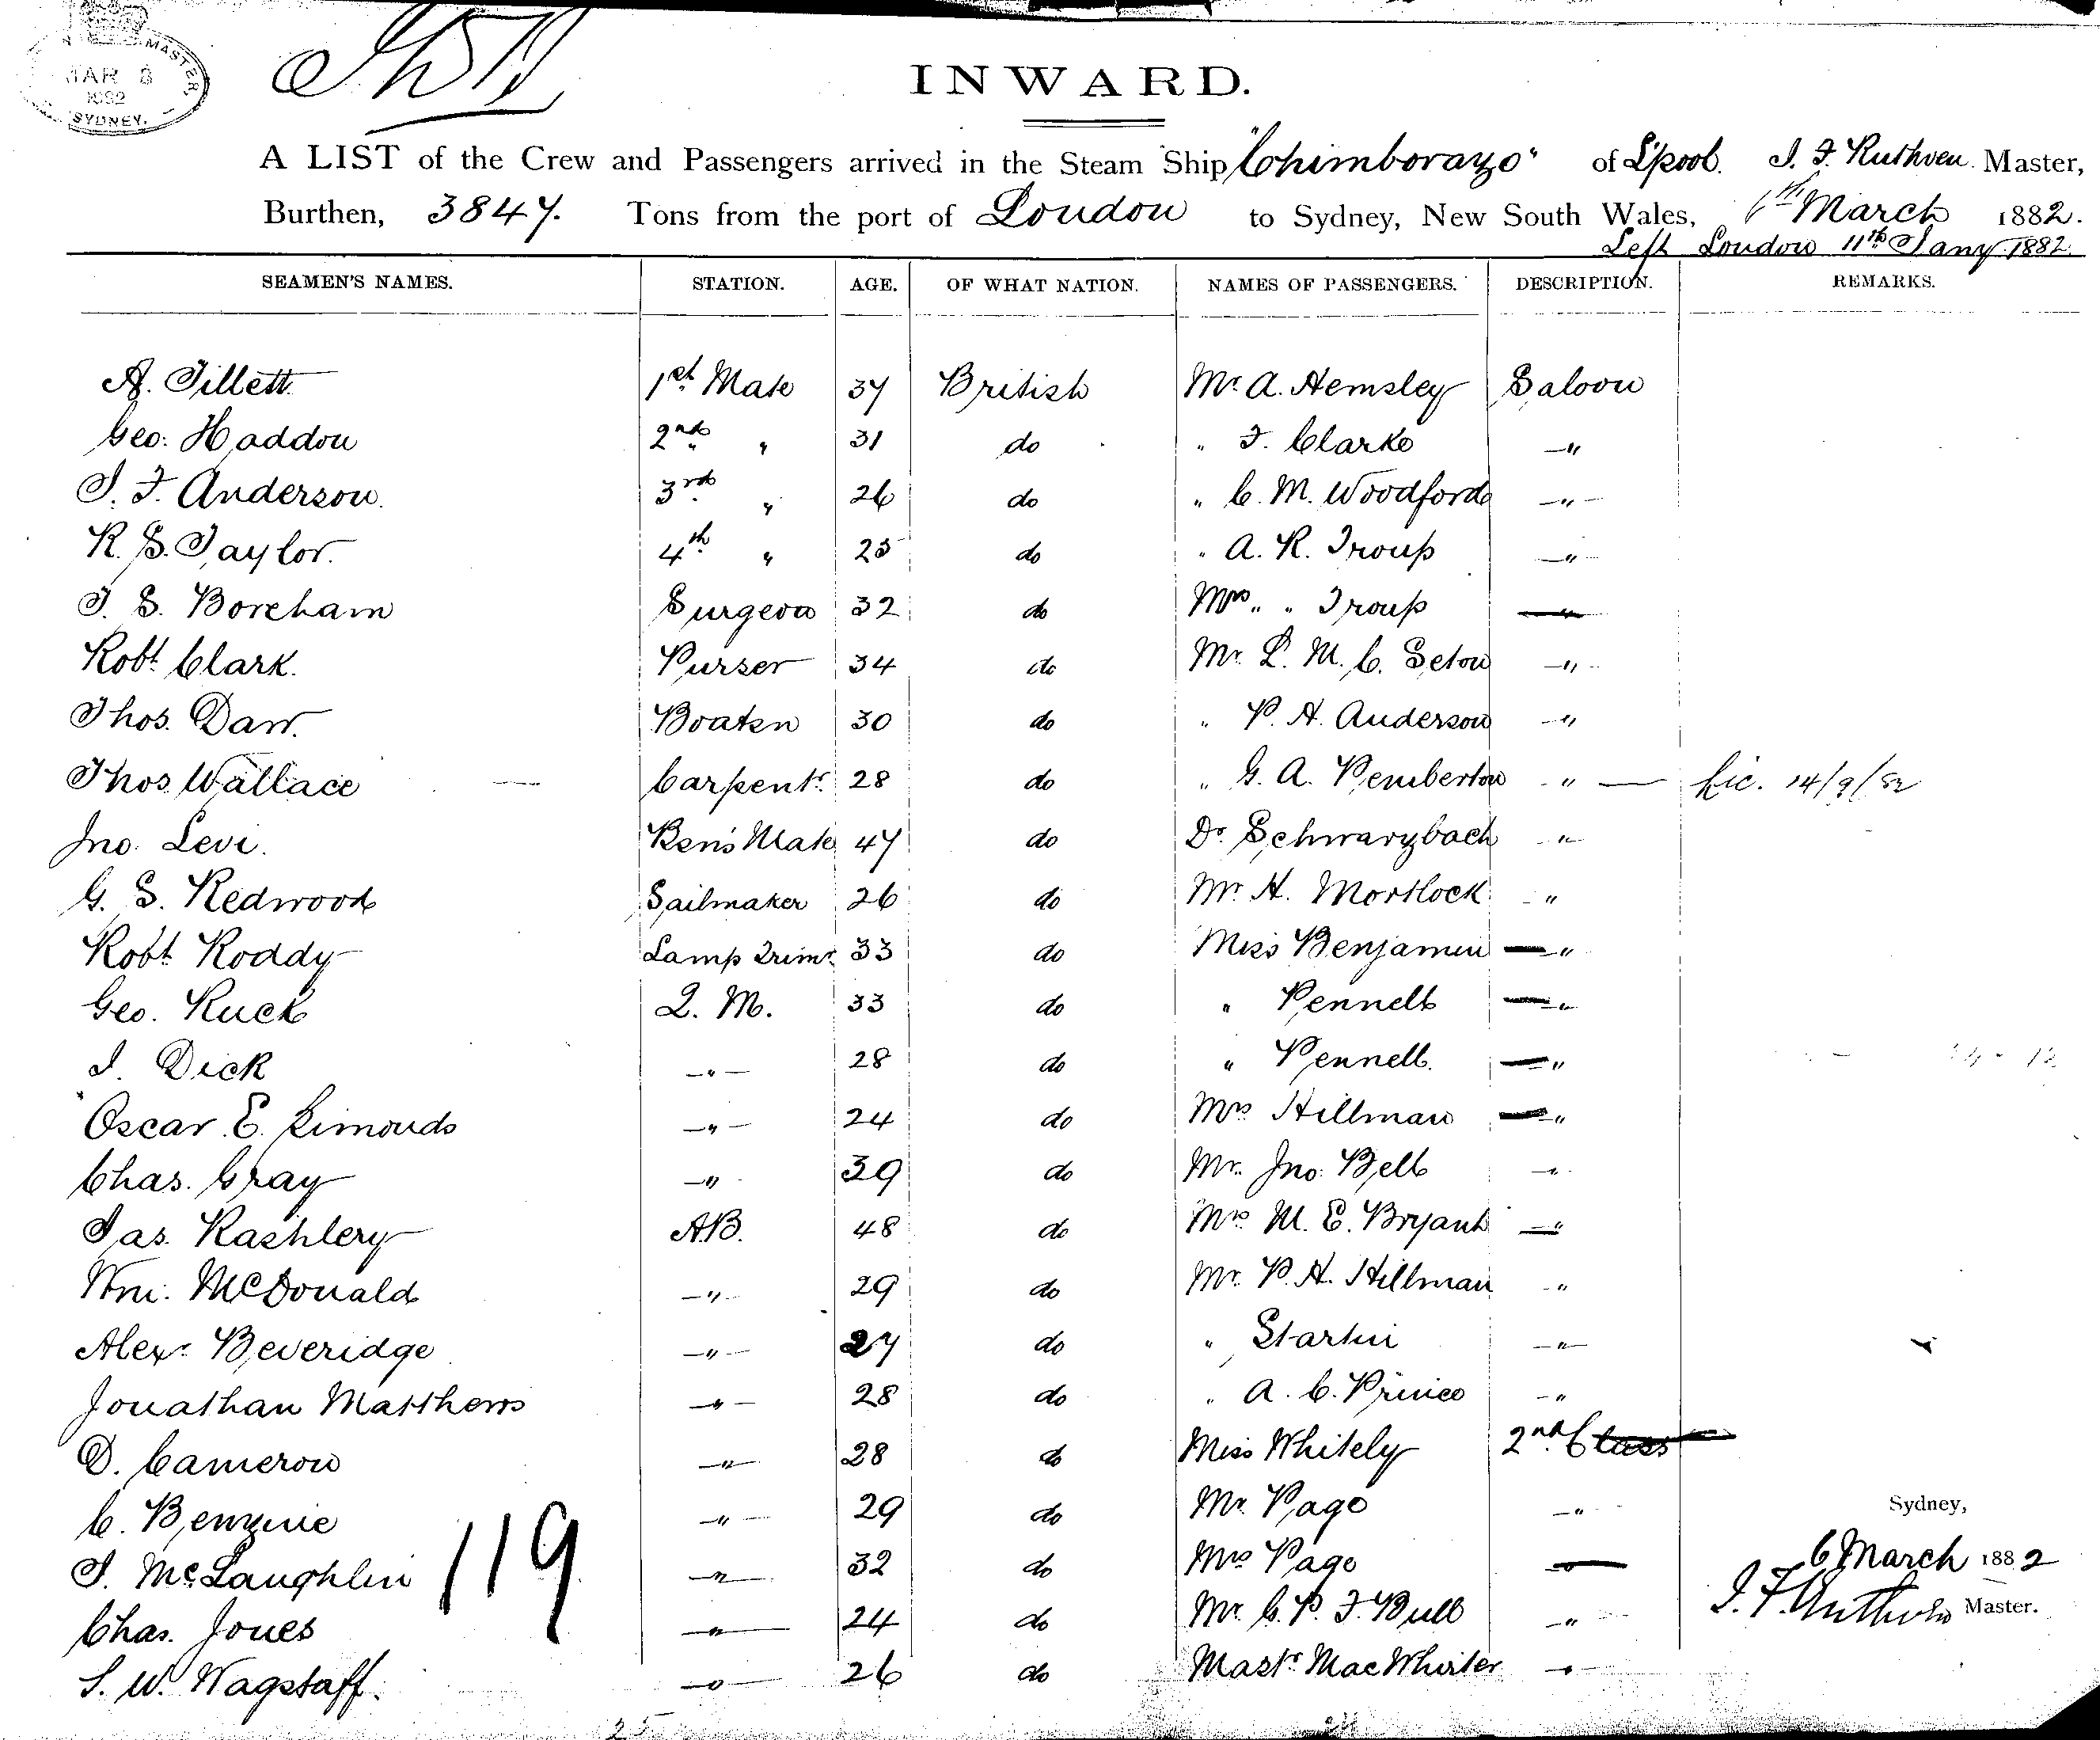 MASTER,
MAR 8
1882
SYDNEY.
INWARD.
A LIST of the Crew and Passengers arrived in the Steam Ship "Chimborazo" of L'pool. J. F. Ruthven Master,
Burthen, 3847. Tons from the port of London to Sydney, New South Wales, 6th March 1882.
Left London 11th Jany 1882.
SEAMEN'S NAMES. STATION. AGE. OF WHAT NATION. NAMES OF PASSENGERS. DESCRIPTION. REMARKS.
A. Tillett 1st Mate 37 British Mr. A. Hemsley Saloon
Geo. Haddon 2nd " 31 do " F. Clarke "
J. F. Anderson. 3rd " 26 do " C. M. Woodford "
R. S. Taylor. 4th " 25 do " A. R. Troup "
J. S. Boreham Surgeon 32 do Mrs " " Troup "
Robt Clark. Purser 34 do Mr. L. M. C. Seton "
Thos. Darr. Boatsn 30 do " P. H. Anderson "
Thos Wallace Carpentr. 28 do " G. A. Pemberton " Lic. 14/9/82
Jno. Levi. Bsn's Mate 47 do Dr Schwarzbach "
G. S. Redwood Sailmaker 26 do Mr. H. Mortlock "
Robt Roddy Lamp Trimr. 33 do Miss Benjamin "
Geo. Ruck Q. M. 33 do " Pennell "
J. Dick " 28 do " Pennell. "
Oscar E. Simonds " 24 do Mrs Hillman "
Chas. Gray " 39 do Mr. Jno. Bell "
Jas. Rashlery A.B. 48 do Mrs M. E. Bryant "
Wm. McDonald " 29 do Mr. P. H. Hillman "
Alexr. Beveridge " 27 do " Startin "
Jonathan Matthews " 28 do " A. C. Prince "
D. Cameron " 28 do Miss Whitely 2nd Class
C. Benzvie " 29 do Mr. Page "
J. McLaughlin " 32 do Mrs Page "
Chas. Jones " 24 do Mr. C. P. F. Bull "
S. W. Wagstaff. " 26 do Mastr MacWhirter "
119
Sydney,
6 March 1882
J. F. Ruthven Master.
25
24